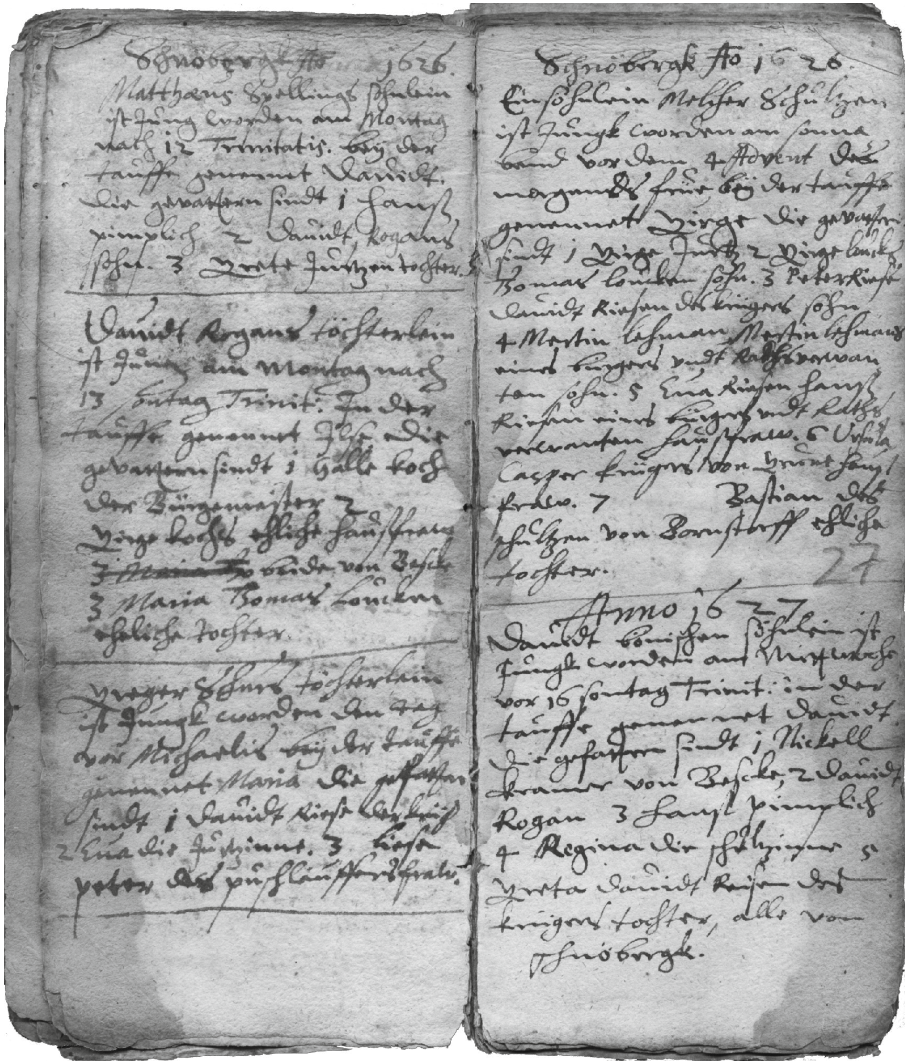 Schnöbergk Ao 1626.
Matthæus Spellings söhnlein
ist Jung worden am Montag
nach 12 Trinitatis. bey der
tauffe genennet Dauidt.
die gevattern sindt 1 Hanß
pimplich 2 Dauidt Rogans
sohn. 3 Grete Jurtzen tochter.
Dauidt Rogans töchterlein
ist Jung am Montag nach
13 sontag Trinit: In der
tauffe genennet Ilse die
gevattern sindt 1 Halle koch
der Bürgemeister 2
Girge kochs ehliche haußfraw
3 bude von Bescke
3 Maria Tomas Loucken
eheliche tochter.
Greger Schurs töchterlein
ist Jungk worden den tag
vor Michaelis bey der tauffe
genennet Maria die gefattern
sindt 1 Dauidt Riese der
2 Eua die 3 Liese
peter des puschleuffers fraw.
Schnöbergk Ao 1626.
Ein söhnlein Melcher Schultzen
ist Jungk worden am sonna
bend vor dem 4 Advent des
morgendes früe bey der tauffe
genennet Girge die gevattern
sindt 1 Girge 2 Girge Loucken
Tomas Loucken sohn. 3 Peter Riese
Dauidt Riesen des krügers sohn
4 Mertin Lehman Mertin Lehmans
eines burgers vndt Rathsverwan
ten sohn. 5 Eua Riesen Hanß
Riesen eines bürgers vndt Raths
verwanten haußfraw. 6 Vrsula
Casper krügers von hauß
fraw. 7 Bastian des
schultzen von Bornstorff ehliche
tochter.
27
Anno 1627
Dauidt söhnlein ist
Jungk worden am Mittwoche
vor 16 sontag Trinit: in der
tauffe genennet Dauidt
die gefattern sindt 1 Nickell
kramer von Bescke, 2 Dauidt
Rogan 3 Hanß pimplich
4 Regina die schultzinne 5
Greta Dauidt Reisen des
krügers tochter, alle von
schnöbergk.